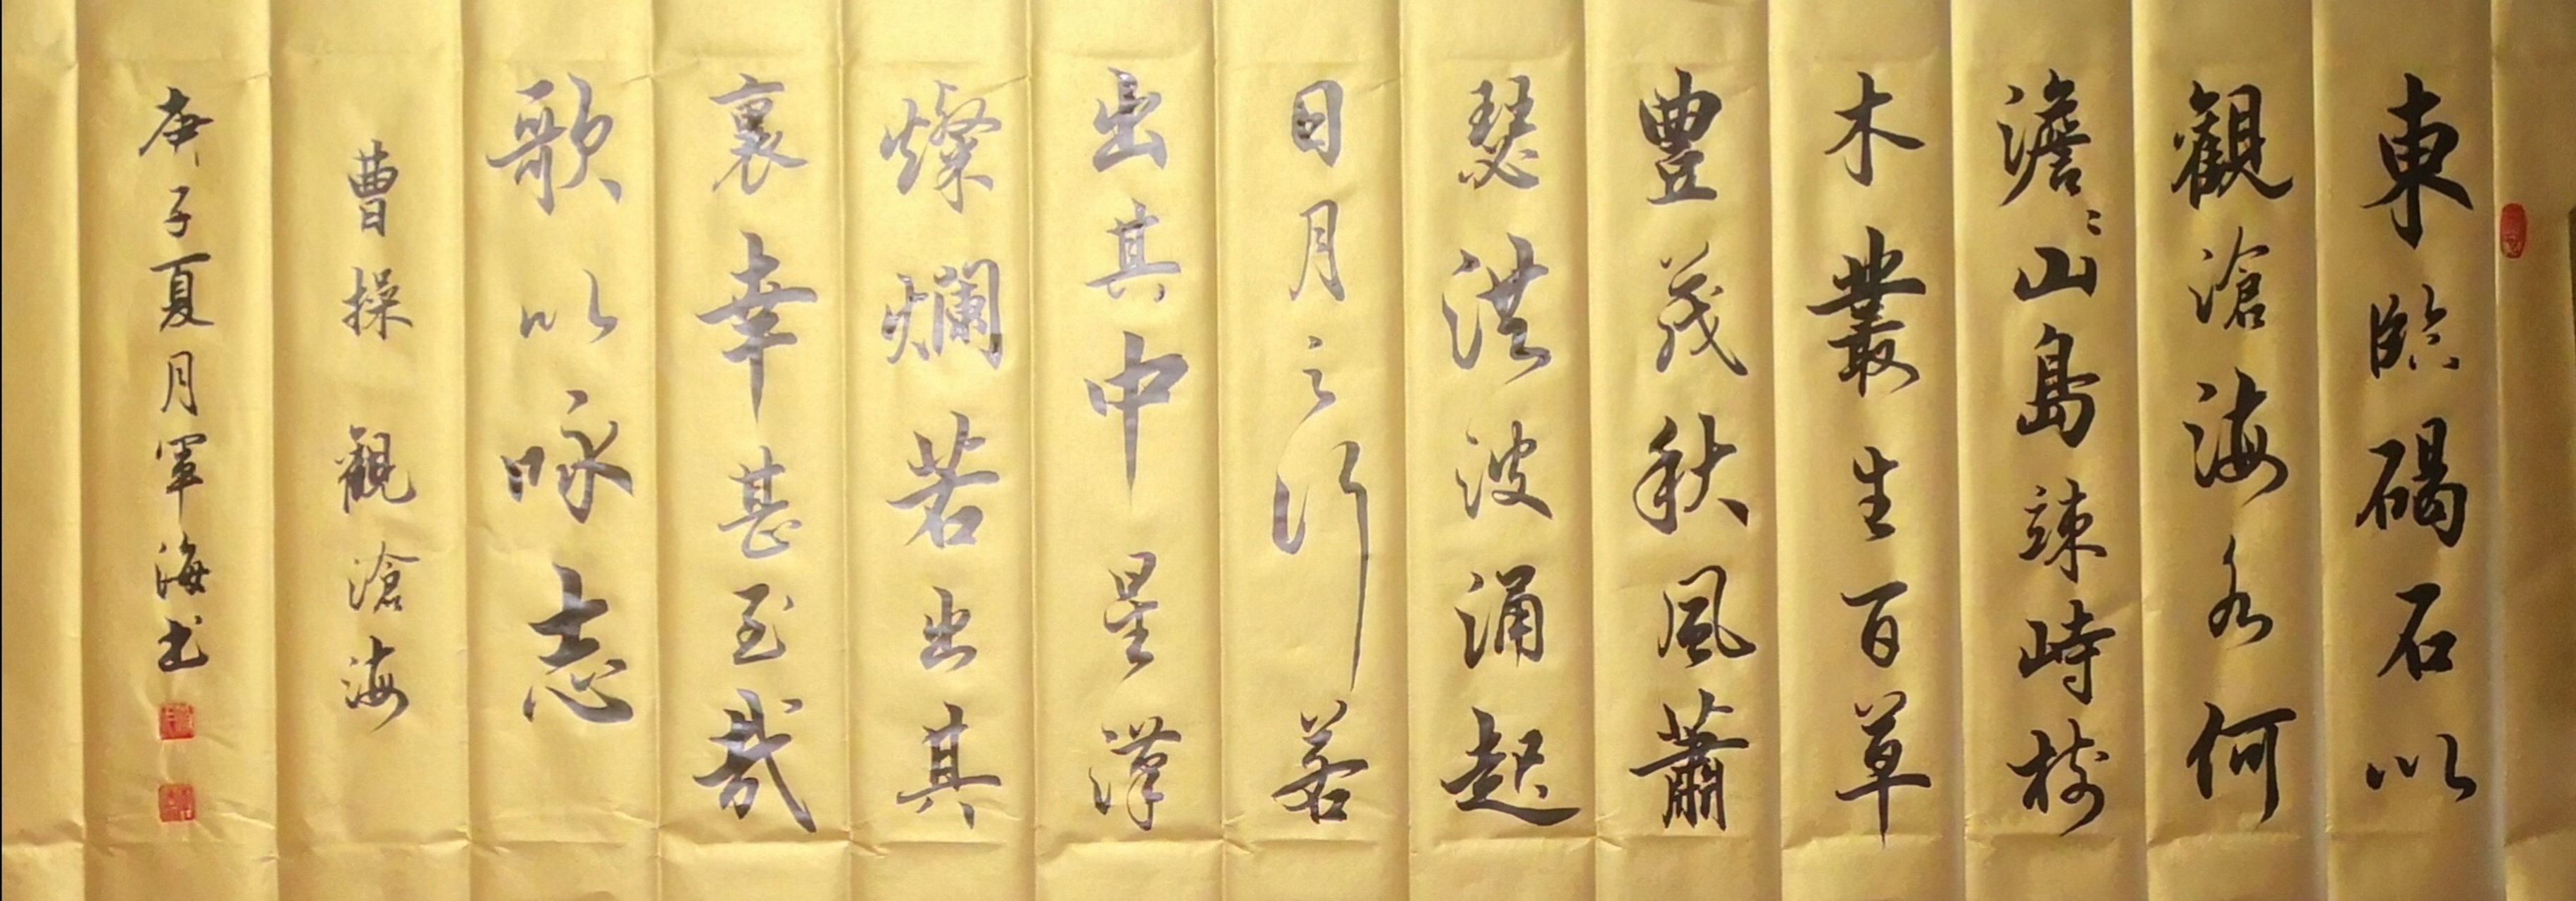 東臨碣石以
觀滄海水何
澹〻山島竦峙樹
木叢生百草
豐茂秋風蕭
瑟洪波涌起
日月之行若
出其中星漢
燦爛若出其
裏幸甚至哉
歌以咏志
曹操觀滄海
庚子夏月軍海书